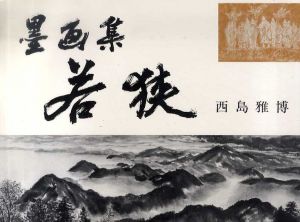 墨画集
若狭
西島雅博